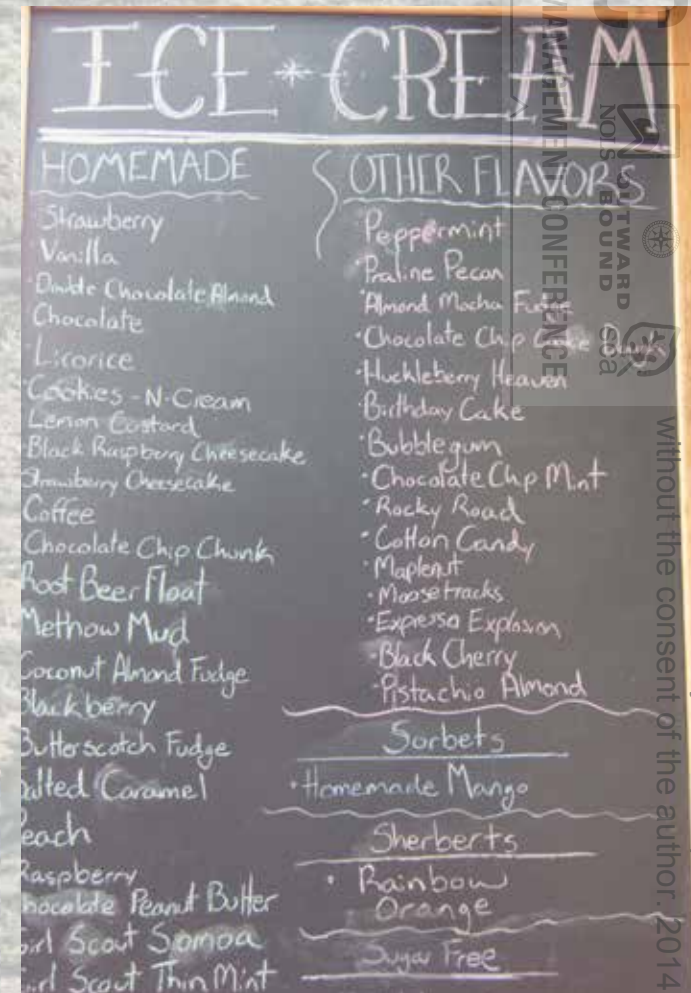 ICE * CREAM
HOMEMADE
Strawberry
Vanilla
Double Chocolate Almond
Chocolate
Licorice
Cookies-N-Cream
Lemon Custard
Black Raspberry Cheesecake
Strawberry Cheesecake
Coffee
Chocolate Chip Chunk
Root Beer Float
Methow Mud
Coconut Almond Fudge
Blackberry
Butterscotch Fudge
alted Caramel
each
Raspberry
hocolate Peanut Butter
irl Scout Somoa
irl Scout Thin Mint
OTHER FLAVORS
Peppermint
Praline Pecan
Almond Mocha Fudge
Chocolate Chip Cookie Dough
Huckleberry Heaven
Birthday Cake
Bubblegum
Chocolate Chip Mint
Rocky Road
Cotton Candy
Maplenut
Moosetracks
Expresso Explosion
Black Cherry
Pistachio Almond
Sorbets
Homemade Mango
Sherberts
Rainbow
Orange
Sugar Free
ANAGEMENT CONFERENCE
NOLS
OUTWARD
BOUND
sca
without the consent of the author. 2014